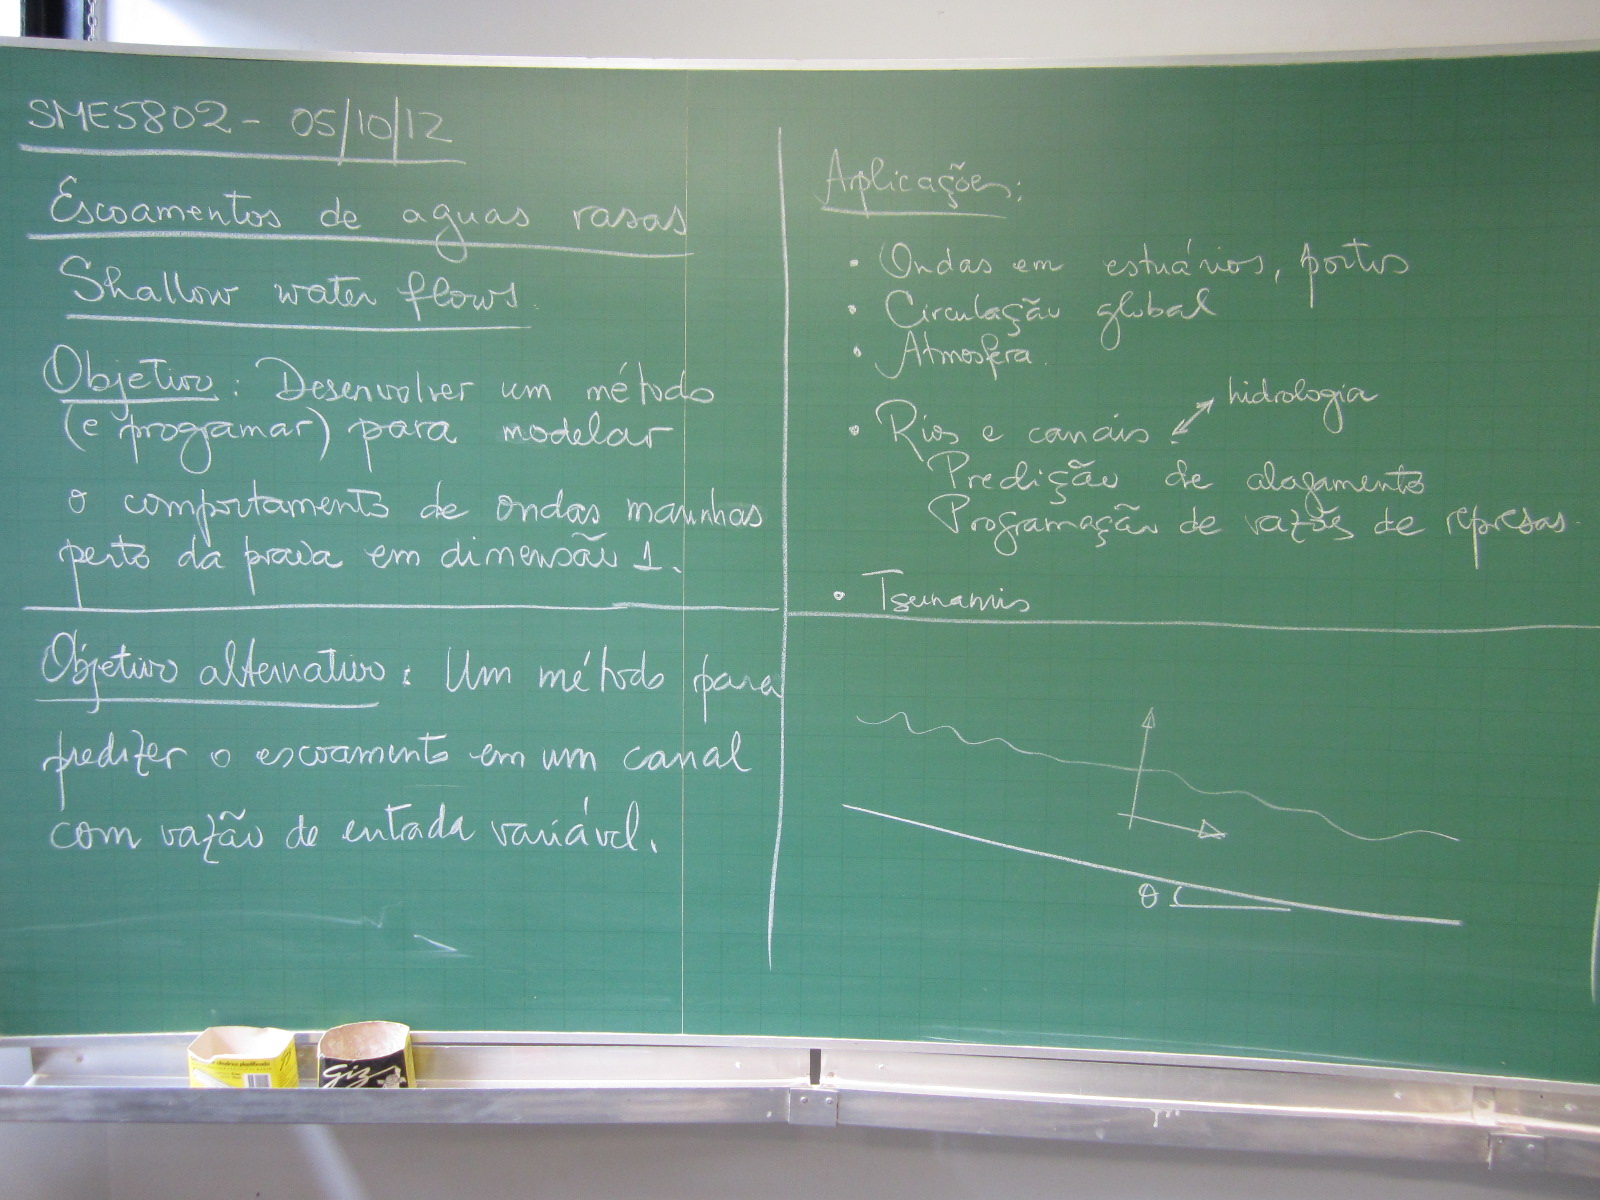 SME5802 - 05/10/12
Escoamentos de aguas rasas
Shallow water flows.
Objetivo: Desenvolver um método
(e programar) para modelar
o comportamento de ondas marinhas
perto da praia em dimensão 1.
Objetivo alternativo: Um método para
predizer o escoamento em um canal
com vazão de entrada variável.
Aplicações:
• Ondas em estuários, portos
• Circulação global
• Atmosfera.
hidrologia
• Rios e canais:
Predição de alagamento
Programação de vazões de represas.
• Tsunamis
θ
giz